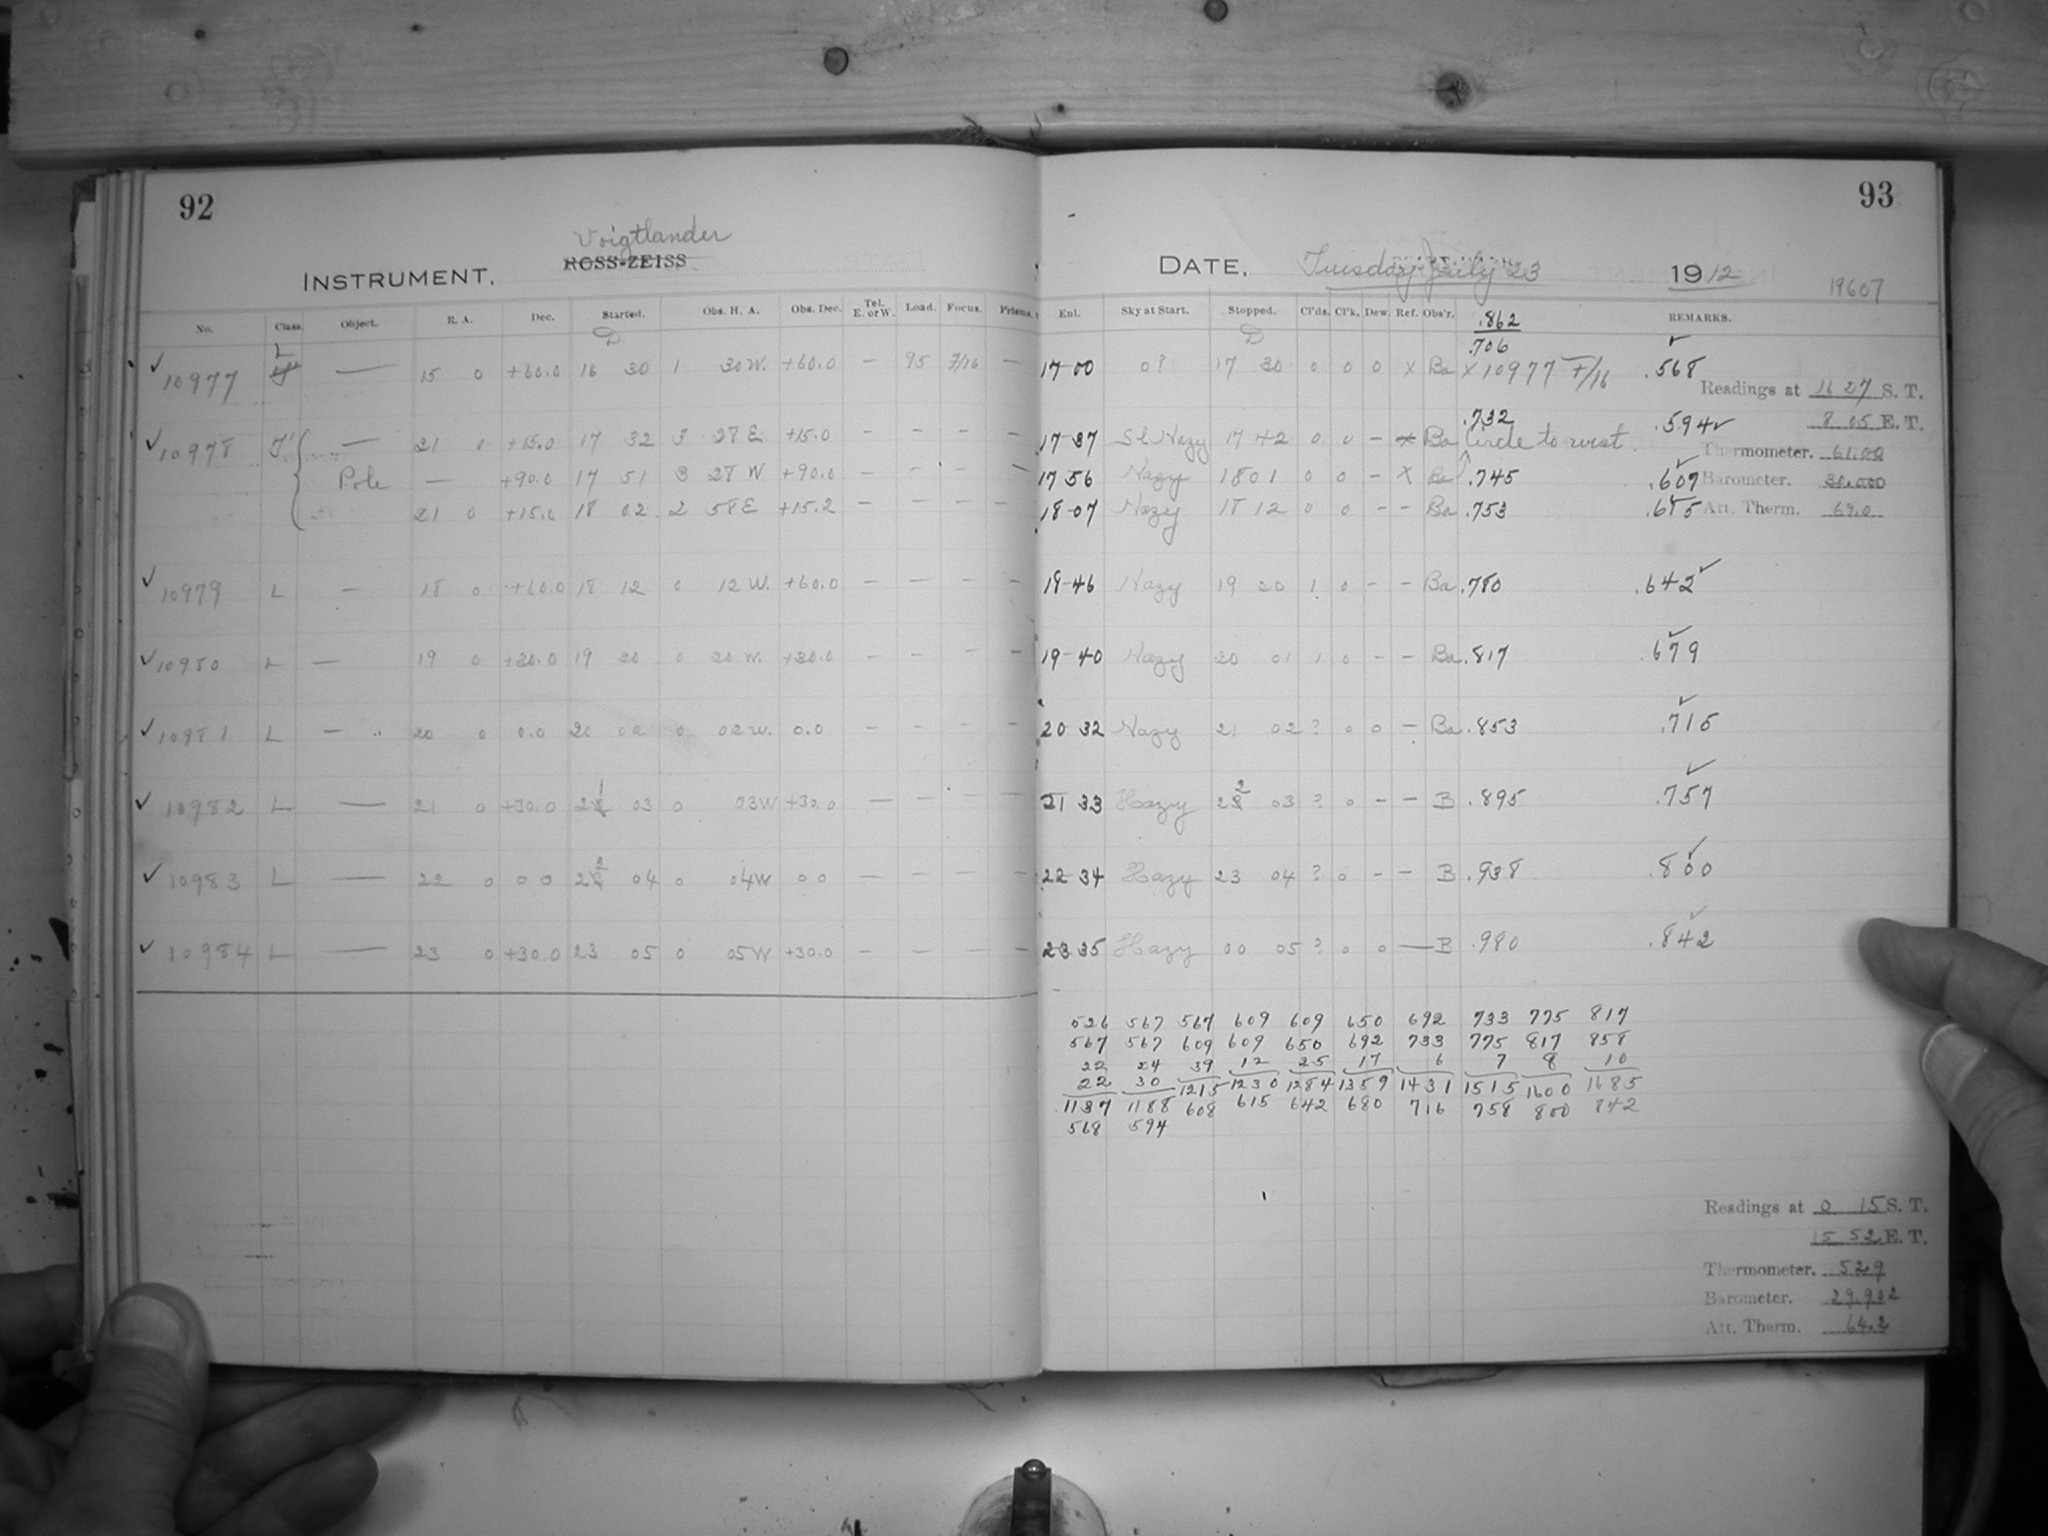 92
93
Voigtlander
INSTRUMENT, ROSS-ZEISS
DATE, Tuesday July 23 1912
19607
No. Class. Object. R. A. Dec. Started. Obs. H. A. Obs. Dec. Tel. E. or W. Load. Focus. Prisms.
Enl. Sky at Start. Stopped. Cl'ds. Cl'k. Dew. Ref. Obs'r. REMARKS.
.862
.706
10977 L — 15 0 +60.0 16 30 1 30 W. +60.0 — 95 7/16 —
17-00 0? 17 30 0 0 0 x Ba x 10977 F/16 .568
Readings at 16 27 S. T.
8 05 E. T.
10978 — 21 0 +15.0 17 32 3 28 E +15.0 — — — —
17-37 Sl Hazy 17 42 0 0 – x Ba .732 Circle to west. .594
Thermometer. 61.00
Pole — +90.0 17 51 3 28 W +90.0 – – – –
17 56 Hazy 18 01 0 0 – x Ba .745 .609
Barometer. 30.000
21 0 +15.0 18 02 2 58 E +15.2 — — — —
18-07 Hazy 18 12 0 0 – – Ba .753 .615
Att. Therm. 69.0
10979 L — 18 0 +60.0 18 12 0 12 W. +60.0 — — — —
18-46 Hazy 19 20 1 0 – – Ba .780 .642
10980 L — 19 0 +30.0 19 20 0 20 W. +30.0 — — — —
19-40 Hazy 20 01 1 0 – – Ba .817 .679
10981 L — 20 0 0.0 20 02 0 02 W. 0.0 — — — —
20 32 Hazy 21 02 ? 0 0 – Ba .853 .715
10982 L — 21 0 +30.0 21 03 0 03 W +30.0 — — — —
21 33 Hazy 22 03 ? 0 – – B .895 .757
10983 L — 22 0 0 0 22 04 0 04 W 0 0 — — — —
22 34 Hazy 23 04 ? 0 – – B .938 .800
10984 L — 23 0 +30.0 23 05 0 05 W +30.0 — — — —
23 35 Hazy 00 05 ? 0 0 — B .980 .842
526 567 567 609 609 650 692 733 775 817
567 567 609 609 650 692 733 775 817 858
22 24 39 12 25 17 6 7 8 10
22 30 1215 1230 1284 1359 1431 1515 1600 1685
1137 1188 608 615 642 680 716 758 800 842
568 594
Readings at 0 15 S. T.
15 52 E. T.
Thermometer. 52.9
Barometer. 29.902
Att. Therm. 64.2